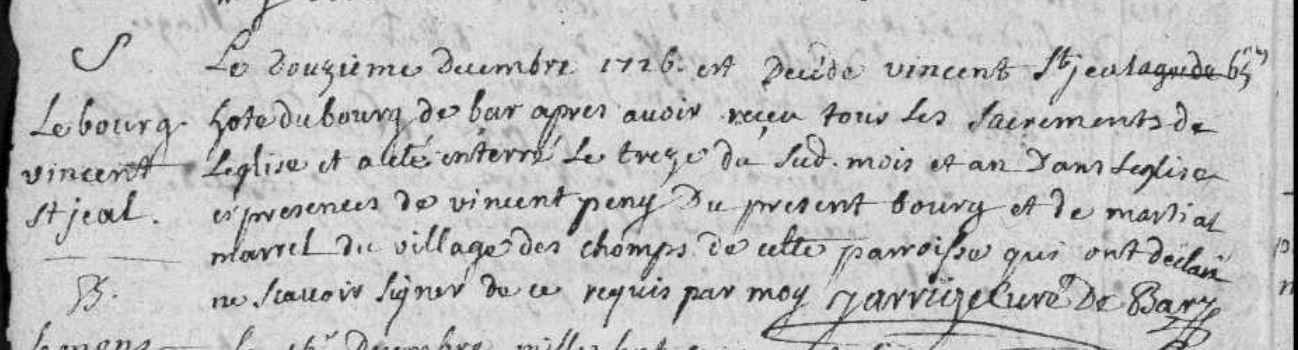 S
Le bourg
vincent
st jeal.
B.
Le douzieme decembre 1726. est decédé vincent st jeal agé de 65
hote du bourg de bar apres avoir reçeu tous les sacrements de
Leglise et a eté enterré le treze du sud. mois et an dans Leglise
es presences de vincent peny du present bourg et de martial
marrel du village des champs de cette parroisse qui ont declaré
ne scavoir signer de ce requis par moy Jarrige Curé De Bar
Le Decembre mille